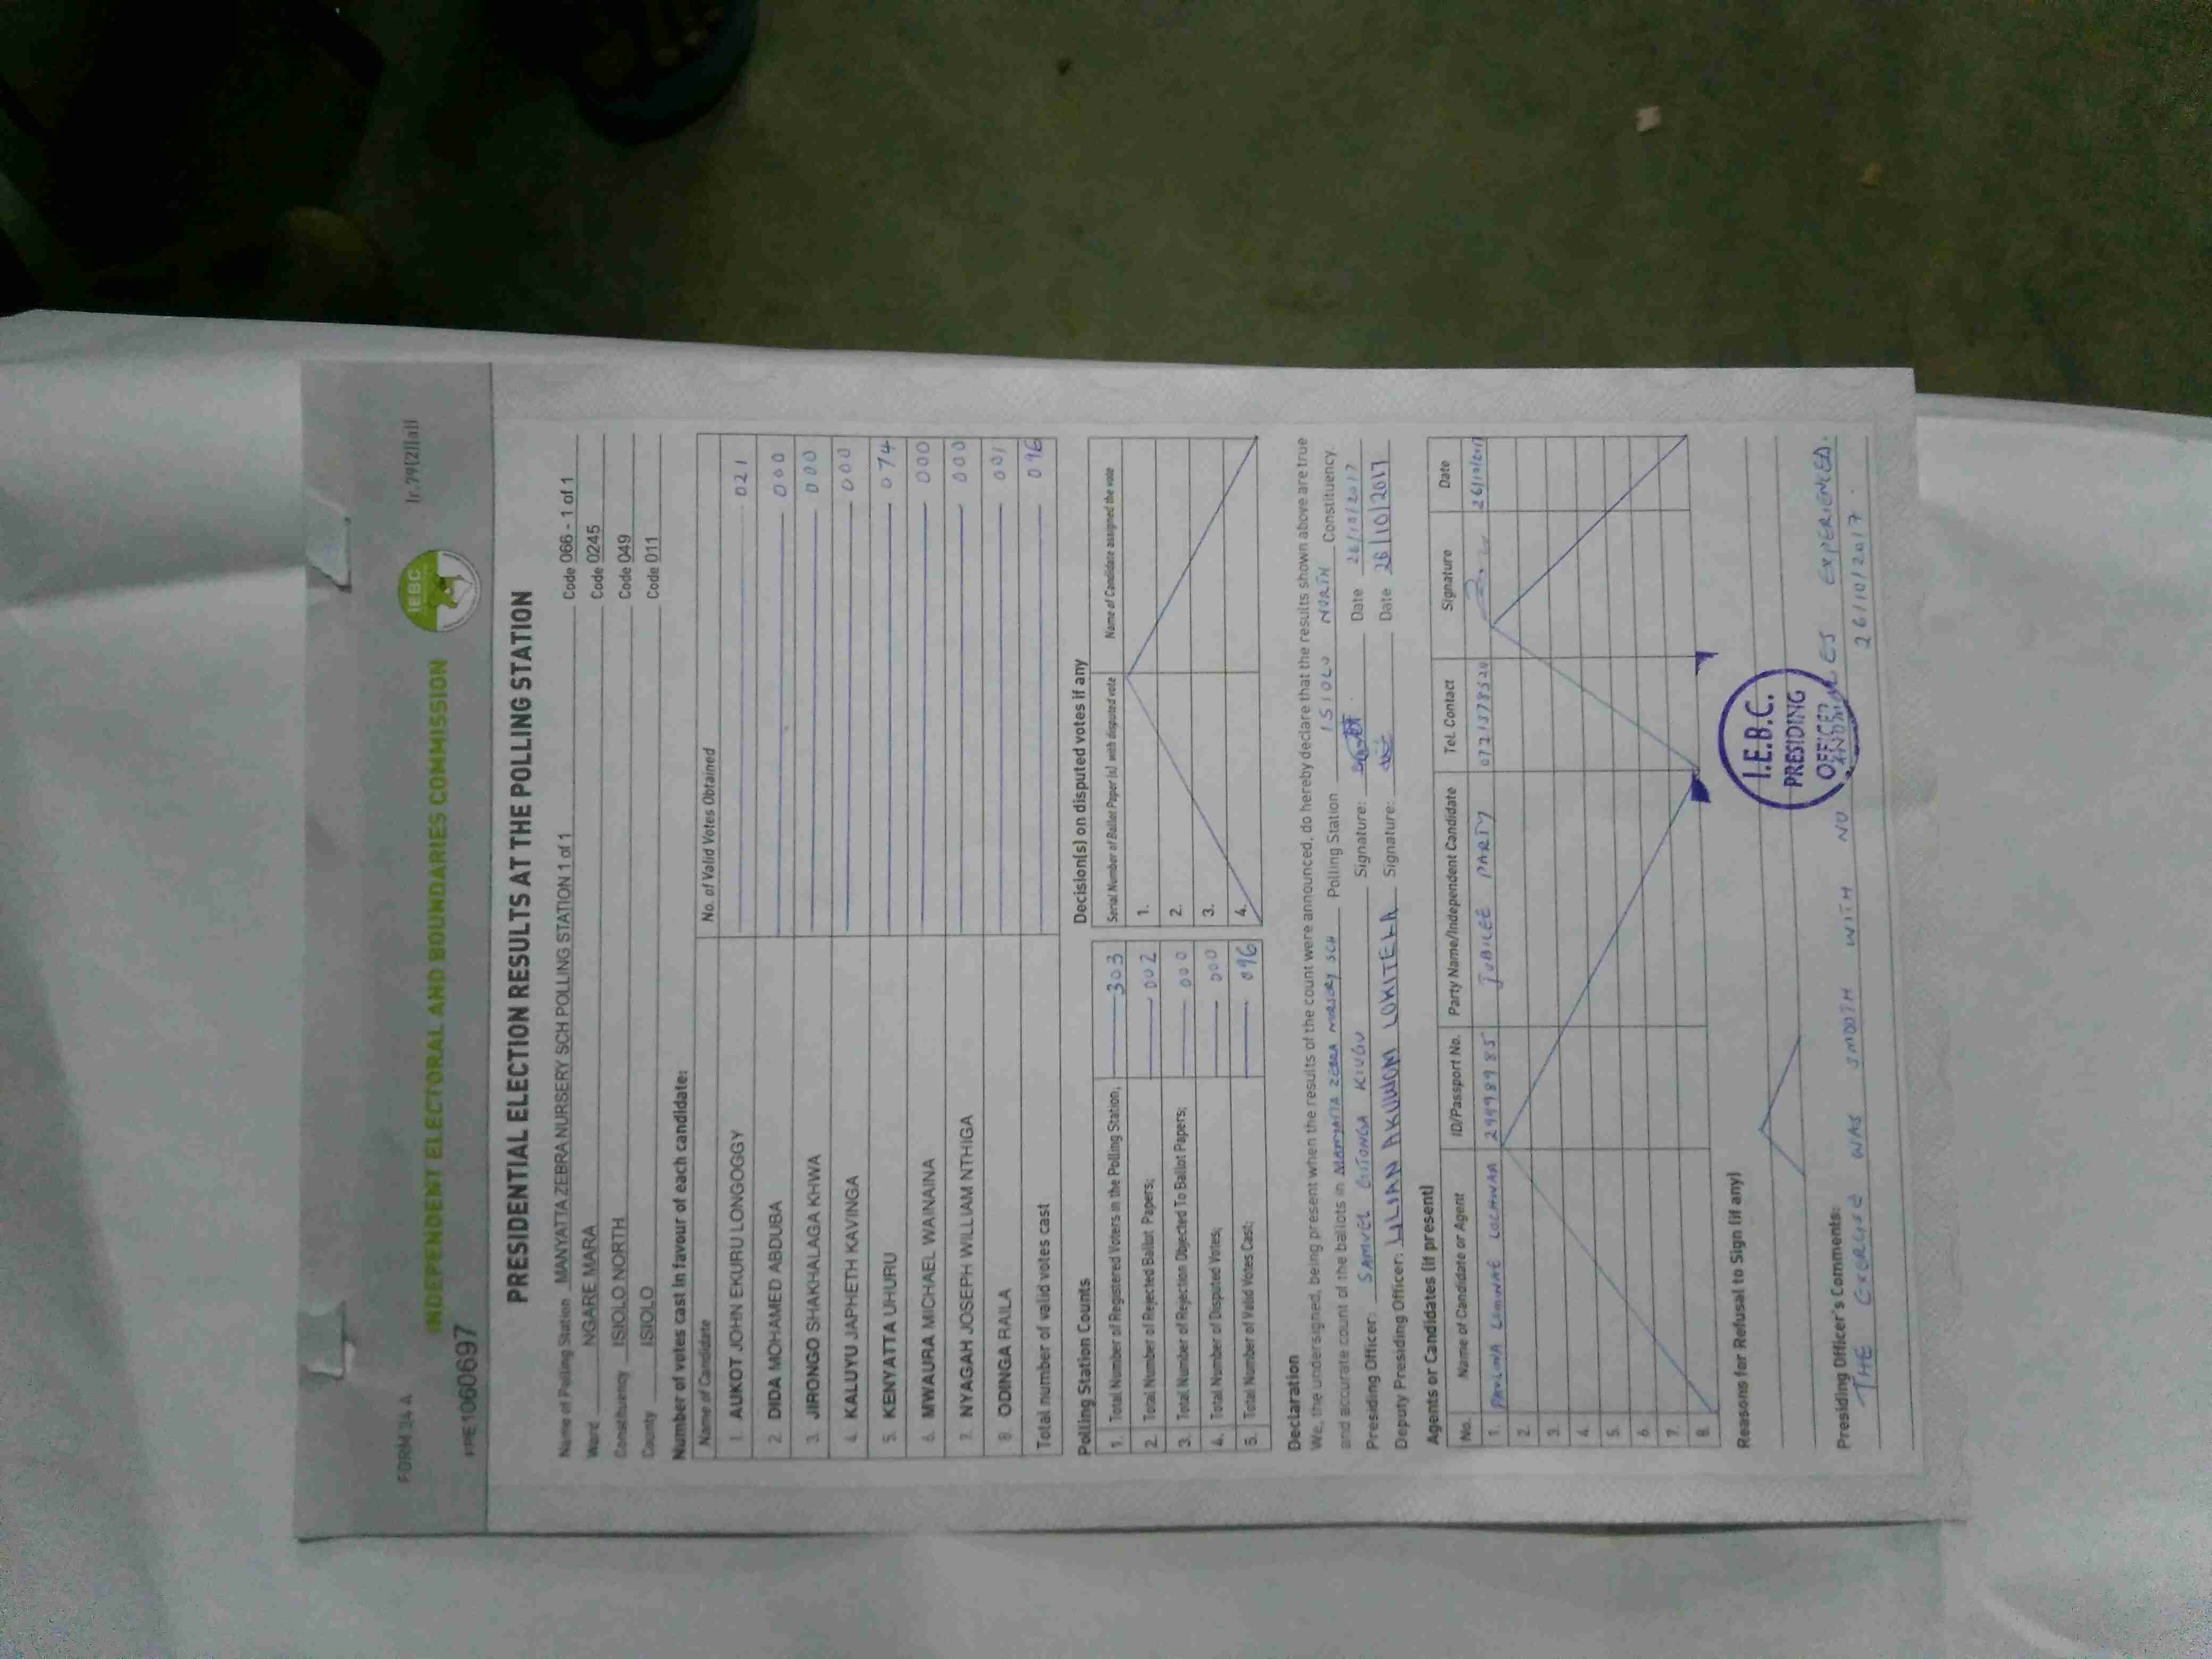 FORM 34 A
INDEPENDENT ELECTORAL AND BOUNDARIES COMMISSION
IEBC
(r.79(2)(a))
FPE1060697
PRESIDENTIAL ELECTION RESULTS AT THE POLLING STATION
Name of Polling Station MANYATTA ZEBRA NURSERY SCH POLLING STATION 1 of 1 Code 066 - 1 of 1
Ward NGARE MARA Code 0245
Constituency ISIOLO NORTH Code 049
County ISIOLO Code 011
Number of votes cast in favour of each candidate:
Name of Candidate No. of Valid Votes Obtained
1. AUKOT JOHN EKURU LONGOGGY 021
2. DIDA MOHAMED ABDUBA 000
3. JIRONGO SHAKHALAGA KHWA 000
4. KALUYU JAPHETH KAVINGA 000
5. KENYATTA UHURU 074
6. MWAURA MICHAEL WAINAINA 000
7. NYAGAH JOSEPH WILLIAM NTHIGA 000
8 ODINGA RAILA 001
Total number of valid votes cast 096
Polling Station Counts
1. Total Number of Registered Voters in the Polling Station; 303
2. Total Number of Rejected Ballot Papers; 002
3. Total Number of Rejection Objected To Ballot Papers; 000
4. Total Number of Disputed Votes; 000
5. Total Number of Valid Votes Cast; 096
Decision(s) on disputed votes if any
Serial Number of Ballot Paper (s) with disputed vote Name of Candidate assigned the vote
1.
2.
3.
4.
Declaration
We, the undersigned, being present when the results of the count were announced, do hereby declare that the results shown above are true
and accurate count of the ballots in MANYATTA ZEBRA NURSERY SCH Polling Station ISIOLO NORTH Constituency.
Presiding Officer: SAMUEL GITONGA KIUGU Signature: Date 26/10/2017
Deputy Presiding Officer: LILIAN AKUWOM LOKITELA Signature: Date 26/10/2017
Agents or Candidates (if present)
No. Name of Candidate or Agent ID/Passport No. Party Name/Independent Candidate Tel. Contact Signature Date
1. PAULINA 29998985 JUBILEE PARTY 26/10/2017
2.
3.
4.
5.
6.
7.
8.
Reasons for Refusal to Sign (if any)
I.E.B.C.
PRESIDING
OFFICER
Presiding Officer's Comments:
THE EXERCISE WAS SMOOTH WITH NO EXPERIENCED.
26/10/2017.